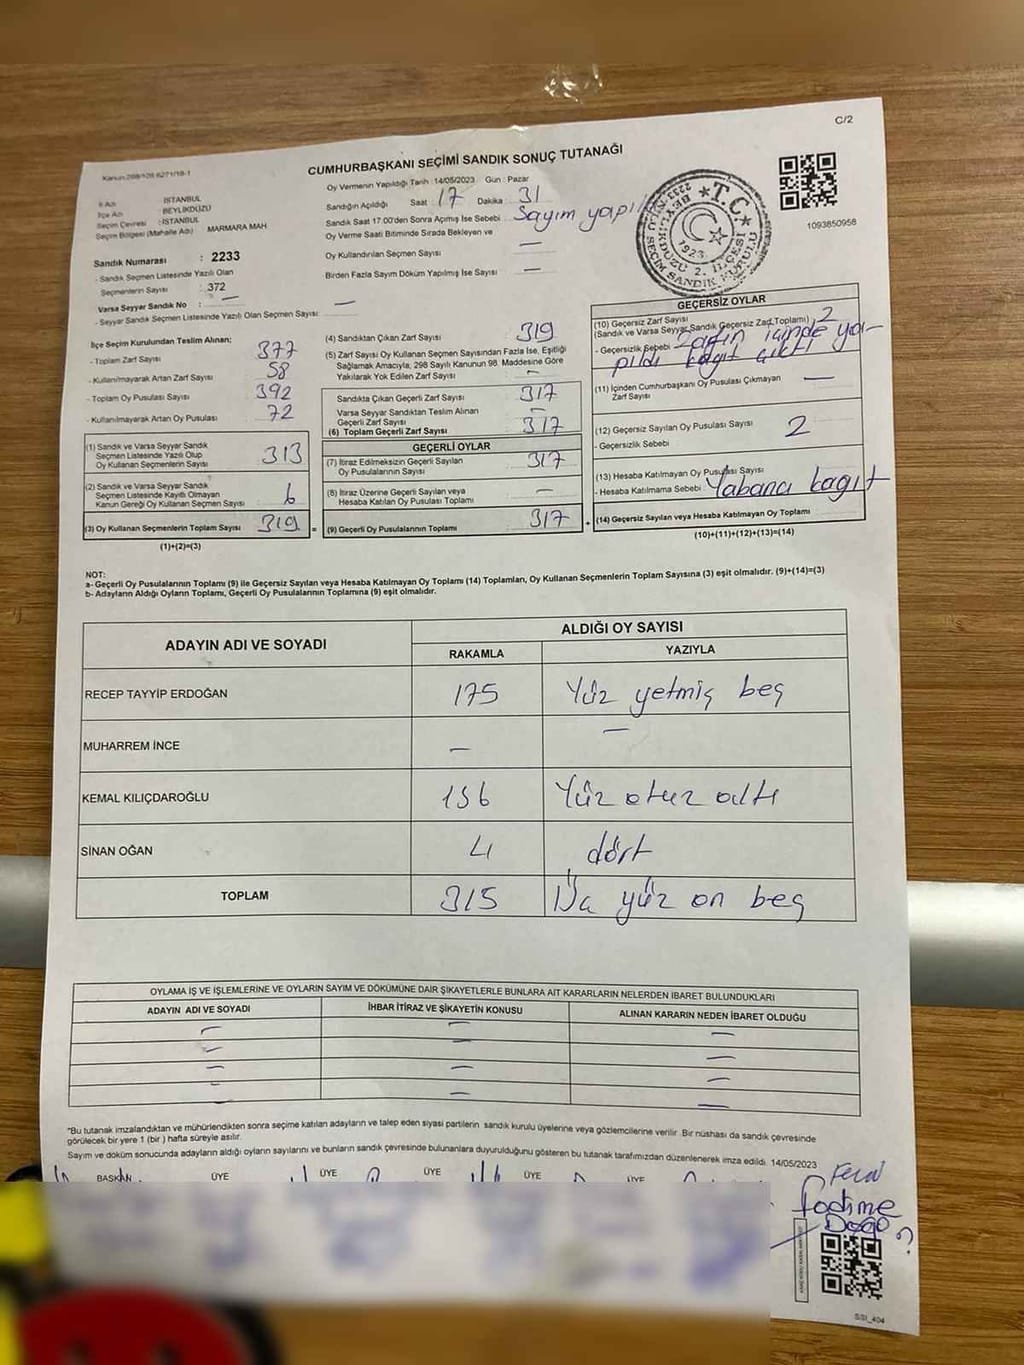 C/2
Kanun:298/106 6271/18-1
CUMHURBAŞKANI SEÇİMİ SANDIK SONUÇ TUTANAĞI
İl Adı : İSTANBUL
İlçe Adı : BEYLİKDÜZÜ
Seçim Çevresi : İSTANBUL
Seçim Bölgesi (Mahalle Adı) MARMARA MAH
Sandık Numarası : 2233
- Sandık Seçmen Listesinde Yazılı Olan
Seçmenlerin Sayısı : 372
Varsa Seyyar Sandık No : —
- Seyyar Sandık Seçmen Listesinde Yazılı Olan Seçmen Sayısı: —
Oy Vermenin Yapıldığı Tarih :14/05/2023 Gün : Pazar
Sandığın Açıldığı Saat : 17 Dakika : 31
Sandık Saat 17.00'den Sonra Açımış İse Sebebi : Sayım
Oy Verme Saati Bitiminde Sırada Bekleyen ve —
Oy Kullandırılan Seçmen Sayısı
Birden Fazla Sayım Döküm Yapılmış İse Sayısı —
T.C.
1923
BEYLİKDÜZÜ 2. İLÇESİ
SEÇİM SANDIK KURULU
1093850958
İlçe Seçim Kurulundan Teslim Alınan;
- Toplam Zarf Sayısı 377
- Kullanılmayarak Artan Zarf Sayısı 58
- Toplam Oy Pusulası Sayısı 392
- Kullanılmayarak Artan Oy Pusulası 72
(1) Sandık ve Varsa Seyyar Sandık
Seçmen Listesinde Yazılı Olup
Oy Kullanan Seçmenlerin Sayısı 313
(2) Sandık ve Varsa Seyyar Sandık
Seçmen Listesinde Kayıtlı Olmayan
Kanun Gereği Oy Kullanan Seçmen Sayısı 6
(3) Oy Kullanan Seçmenlerin Toplam Sayısı 319 =
(1)+(2)=(3)
(4) Sandıktan Çıkan Zarf Sayısı 319
(5) Zarf Sayısı Oy Kullanan Seçmen Sayısından Fazla İse, Eşitliği
Sağlamak Amacıyla, 298 Sayılı Kanunun 98. Maddesine Göre
Yakılarak Yok Edilen Zarf Sayısı —
Sandıkta Çıkan Geçerli Zarf Sayısı 317
Varsa Seyyar Sandıktan Teslim Alınan
Geçerli Zarf Sayısı —
(6) Toplam Geçerli Zarf Sayısı 317
GEÇERLİ OYLAR
(7) İtiraz Edilmeksizin Geçerli Sayılan
Oy Pusulalarının Sayısı 317
(8) İtiraz Üzerine Geçerli Sayılan veya
Hesaba Katılan Oy Pusulası Toplamı —
(9) Geçerli Oy Pusulalarının Toplamı 317 +
GEÇERSİZ OYLAR
(10) Geçersiz Zarf Sayısı 2
(Sandık ve Varsa Seyyar Sandık Geçersiz Zarf Toplamı)
- Geçersizlik Sebebi Zarfın içinde ya-
pıldı kağıt çıktı
(11) İçinden Cumhurbaşkanı Oy Pusulası Çıkmayan
Zarf Sayısı —
(12) Geçersiz Sayılan Oy Pusulası Sayısı 2
- Geçersizlik Sebebi
(13) Hesaba Katılmayan Oy Pusulası Sayısı
- Hesaba Katılmama Sebebi Yabancı kağıt
(14) Geçersiz Sayılan veya Hesaba Katılmayan Oy Toplamı
(10)+(11)+(12)+(13)=(14)
NOT:
a- Geçerli Oy Pusulalarının Toplamı (9) ile Geçersiz Sayılan veya Hesaba Katılmayan Oy Toplamı (14) Toplamları, Oy Kullanan Seçmenlerin Toplam Sayısına (3) eşit olmalıdır. (9)+(14)=(3)
b- Adayların Aldığı Oyların Toplamı, Geçerli Oy Pusulalarının Toplamına (9) eşit olmalıdır.
ADAYIN ADI VE SOYADI ALDIĞI OY SAYISI
RAKAMLA YAZIYLA
RECEP TAYYİP ERDOĞAN 175 Yüz yetmiş beş
MUHARREM İNCE — —
KEMAL KILIÇDAROĞLU 136 Yüz otuz altı
SİNAN OĞAN 4 dört
TOPLAM 315 Üç yüz on beş
OYLAMA İŞ VE İŞLEMLERİNE VE OYLARIN SAYIM VE DÖKÜMÜNE DAİR ŞİKAYETLERLE BUNLARA AİT KARARLARIN NELERDEN İBARET BULUNDUKLARI
ADAYIN ADI VE SOYADI İHBAR İTİRAZ VE ŞİKAYETİN KONUSU ALINAN KARARIN NEDEN İBARET OLDUĞU
— — —
— — —
— — —
— — —
*Bu tutanak imzalandıktan ve mühürlendikten sonra seçime katılan adayların ve talep eden siyasi partilerin sandık kurulu üyelerine veya gözlemcilerine verilir. Bir nüshası da sandık çevresinde
görülecek bir yere 1 (bir ) hafta süreyle asılır.
Sayım ve döküm sonucunda adayların aldığı oyların sayılarını ve bunların sandık çevresinde bulunanlara duyurulduğunu gösteren bu tutanak tarafımızdan düzenlenerek imza edildi. 14/05/2023
BAŞKAN ÜYE ÜYE ÜYE ÜYE ÜYE
SSI_404